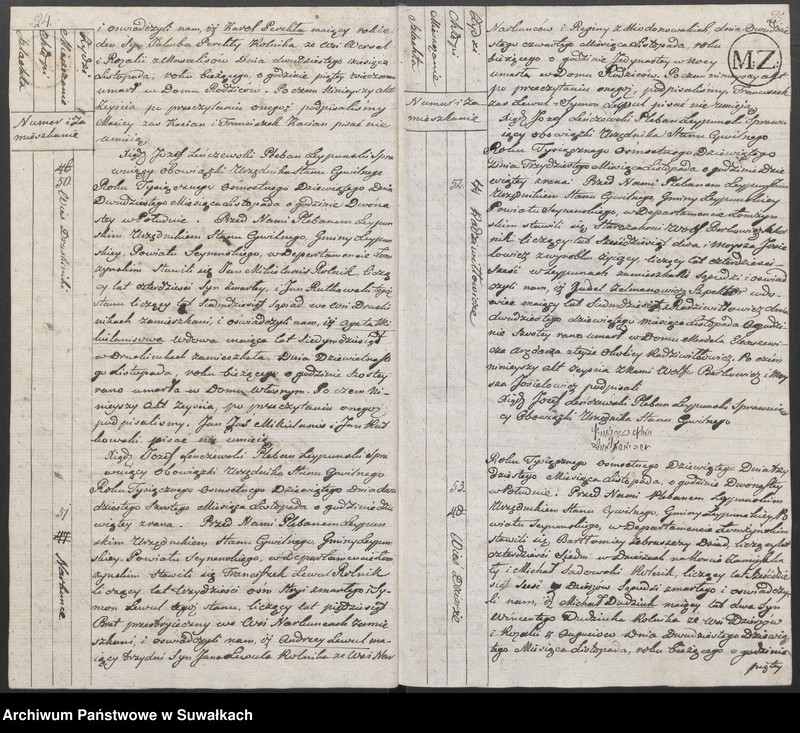 24
Żydzi
Mieszczanie
Chłopi
Szlachta
Numer i Za
mieszkanie
i oswiadczyli nam, iż Karol Perekta maiący rok ie
den Syn Jakuba Perekty Rolnika ze wsi
z Rozalii z Kowalsów Dnia dwudziestego miesiąca
Listopada, roku bieżącego, o godzinie piątey wieczorem
umarł w Domu Rodziców. Po czem Ninieyszy Akt
Zeyścia po przeczytaniu onegoż podpisaliśmy
Maciey zaś Kacian i Franciszek Kacian pisać nie
umieią
Xiądz Jozef Lenczewski Pleban Leypunski Spra
wuiący obowiązki Urzędnika Stanu Cywilnego
46
50. Wieś Drusliniki
Roku Tysiącznego osmsetnego Dziewiątego Dnia
Dwudziestego Miesiąca Listopada o godzinie Dwona
stey w Południe. Przed Nami Plebanem Leypun
skim Urzędnikiem Stanu Cywilnego, Gminy Leypun
skiey. Powiatu Seynenskiego, w Departamencie Łom
zynskim Stawili się Jan Mikielanis Rolnik, licżą
cy lat czterdzieści Syn zmarłey, i Jan Rutkowski tegoż
stanu liczący lat Siedmdziesiąt Sąsiad we wsi Drusli
nikach zamieszkani, i oswiadczyli nam, iż Agata Mi
kielanisowa Wdowa maiąca lat Siedmdziesiąt
w Druslinikach zamieszkała. Dnia Dziewietnaste
go Listopada, roku bieżącego o godzinie Szostey
rano umarła w Domu Własnym. Po czem Ni
nieyszy Akt Zeyscia, po przeczytaniu onegoż
podpisaliśmy. Jan zaś Mikielanis i Jan Rut
kowski pisać nie umieią
Xiądz Jozef Lenczewski Pleban Leypunski Spra
wuiący obowiązki Urzędnika Stanu Cywilnego
51
Narkunce
Roku Tysiącznego Osmsetnego Dziewiątego Dnia dwu
dziestego Szostego Miesiąca Listopada o godzinie Dzie
wiątey zrana. Przed Nami Plebanem Leypun
skim Urzędnikiem Stanu Cywilnego, Gminy Leypun
skiey. Powiatu Seynenskiego, w Departamencie Łom
zynskim Stawili się Franciszek Lewul Rolnik
liczący lat trzydzieści osm Stryi zmarłego i Sy
mon Lewul tegoż stanu, liczący lat pięćdziesiąt
Brat przestryieczny we wsi Narkuncach zamie
szkani, i oswiadczyli nam, iż Andrzey Lewul ma
iący trzy dni Syn Jana Lewula Rolnika ze Wsi Nar
Żydzi
Mieszczanie
Chłopi
Szlachta
Numer i Za
mieszkanie
M.Z.
Narkunców i Reginy z Miodonowskich, dnia Dwudzie
stego czwartego Miesiąca Listopada, roku
bieżącego o godzinie Jedynastey w Nocy
umarł w Domu Rodziców. Po czem ninieyszy akt
po przeczytaniu onegoż, podpisaliśmy. Franciszek
zaś Lewul i Symon Lewul pisać nie umieią
Xiądz Jozef Lenczewski Pleban Leypunski Sprawu
iący obowiązki Urzędnika Stanu Cywilnego
52.
Radziwiłłowicze
Roku Tysiącznego Osmsetnego Dziewiątego
Dnia Trzydziestego Miesiąca Listopada o godzinie Dzie
wiątey zrana. Przed Nami Plebanem Leypunskim
Urzędnikiem Stanu Cywilnego, Gminy Leypunskiey
Powiatu Seynenskiego, w Departamencie Łomzyn
skim stawili się Starozakonni Wolf Berkowicz
nik liczący lat Szescdziesiąt dwa i Moysza Josie
lowicz z wyrobku żyiący, liczący lat czterdzieści
Sześć w Leypunach zamieszkali Sąsiedzi i oswiad
czyli nam, iż Judel Zelmanowicz Szpektor wdo
wiec maiący lat Siedmdziesiąt w Radziwiłłowicz dnia
dwudziestego dziewiątego miesiąca Listopada o godzi
nie Szostey rano umarł w Domu Mordela
Arędarza z teyże okolicy Radziwiłłowicz. Po czem
ninieyszy Akt Zeyscia z Nami Wolf Berkowicz i Moy
sza Josielowicz podpisali
Xiądz Jozef Lenczewski Pleban Leypunski Sprawuią
cy Obowiązki Urzędnika Stanu Cywilnego
53.
Wieś Dzierze
Roku Tysiącznego osmsetnego Dziewiątego Dnia trzy
dziestego Miesiąca Listopada, o godzinie Dwonastey
w Południe. Przed Nami Plebanem Leypunskim
Urzędnikiem Stanu Cywilnego, Gminy Leypunskiey, Po
wiatu Seynenskiego, w Departamencie Łomzynskim
stawili się, Bartłomiey Zabraszery Dziad, liczący lat
czterdzieści Siedm
ły i Michał Sadowski Rolnik, liczący lat
siąt Sześć z Dzierzow Sąsiedzi zmarłego i oswiadczy
li nam, iż Michał Dudziuk maiący lat dwa Syn
Wincentego Dudziuka Rolnika ze wsi Dzierzow
i Rozalii z Auguciow Dnia Dwudziestego Dziewią
tego Miesiąca Listopada, roku bieżącego o godzinie
piątey
Archiwum Państwowe w Suwałkach